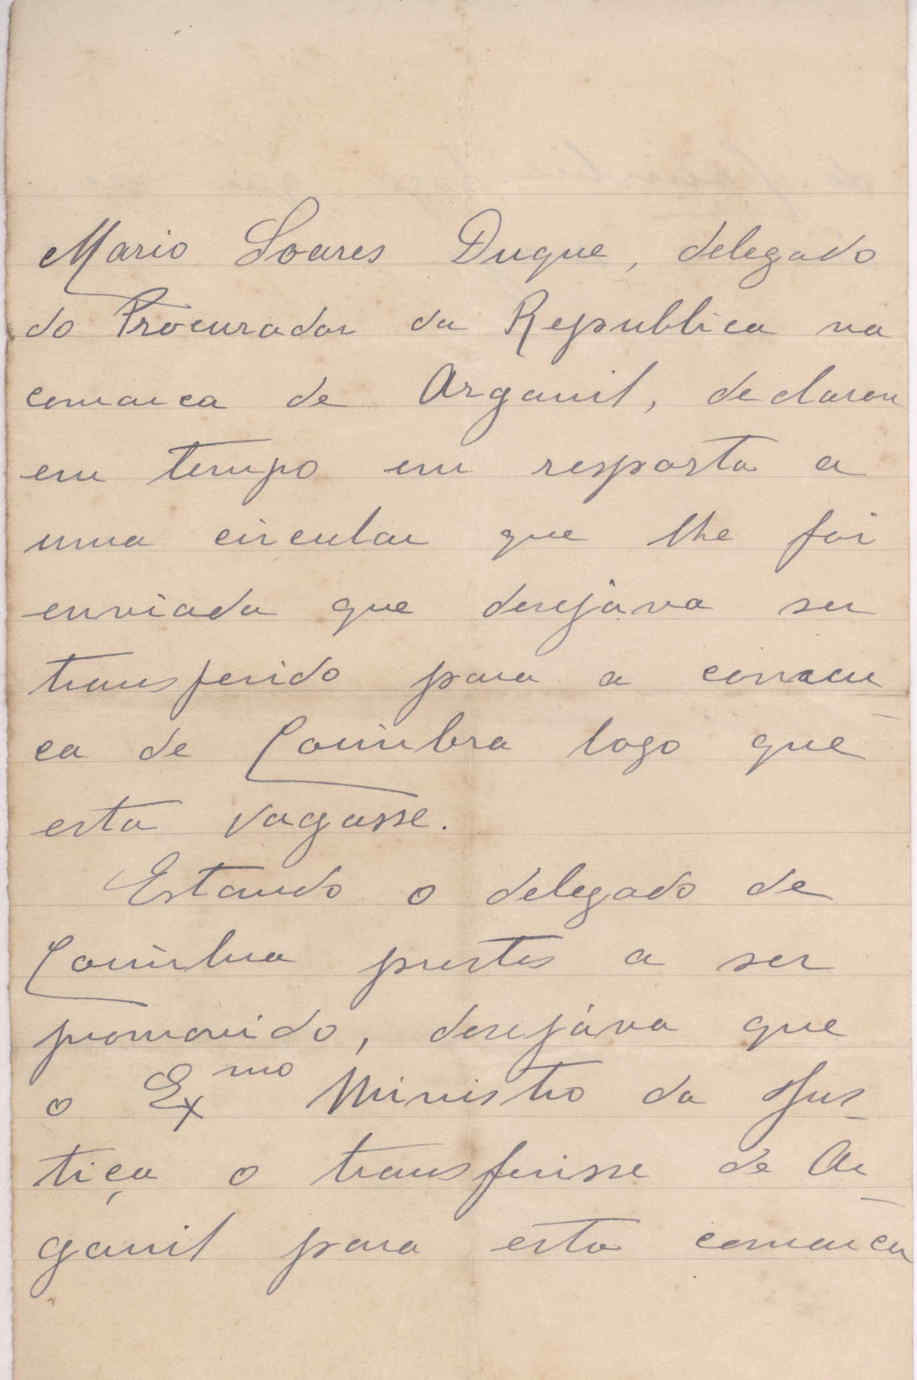 Mario Soares Duque, delegado
do Procurador da Republica na
comarca de Arganil, declarou
em tempo em resposta a
uma circular que lhe foi
enviada que desejava ser
transferido para a comar-
ca de Coimbra logo que
esta vagasse.
Estando o delegado de
Coimbra prestes a ser
promovido, desejava que
o Exmo Ministro da Jus-
tiça o transferisse de Ar-
ganil para esta comarca